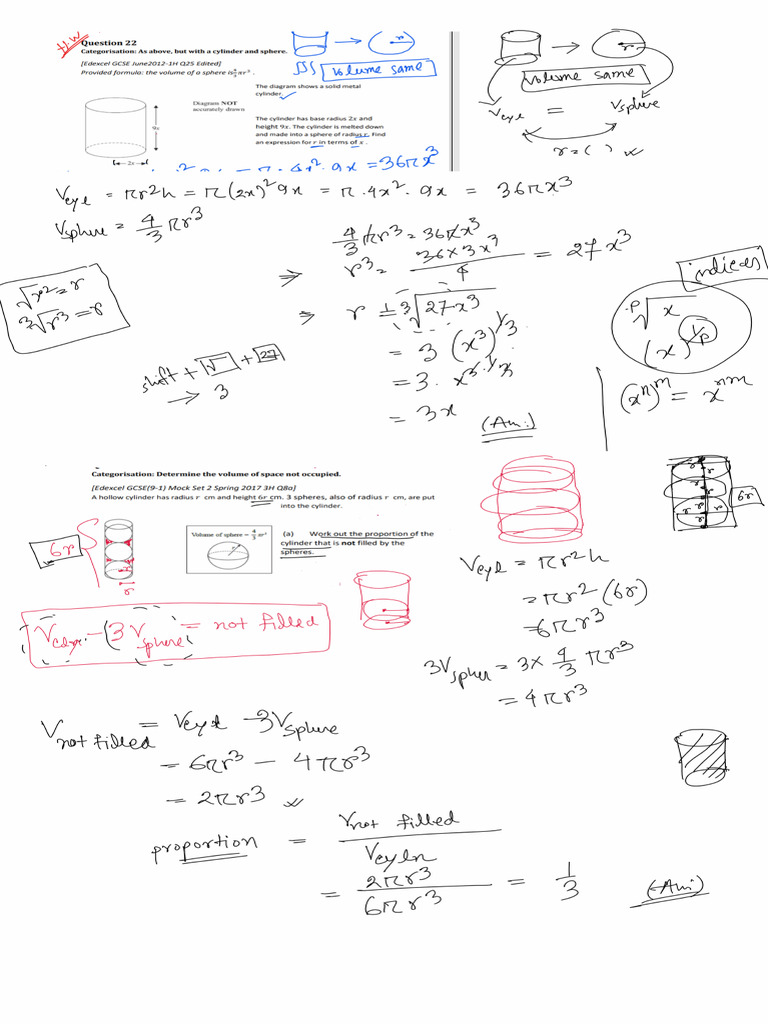 H.W
Question 22
Categorisation: As above, but with a cylinder and sphere.
[Edexcel GCSE June2012-1H Q25 Edited]
Provided formula: the volume of a sphere is 4/3 πr³ .
volume same
The diagram shows a solid metal
cylinder.
Diagram NOT
accurately drawn
9x
2x
The cylinder has base radius 2x and
height 9x. The cylinder is melted down
and made into a sphere of radius r. Find
an expression for r in terms of x .
r
volume same
Vcyl = Vsphere
r = ( )
= 36πx³
Vcyl = πr²h = π(2x)² 9x = π·4x²·9x = 36πx³
Vsphere = 4/3 πr³
4/3 πr³ = 36πx³
⇒ r³ = 36×3x³/4 = 27x³
⇒ r = ³√27x³
= 3 (x³)^1/3
= 3· x^3·1/3
= 3x
(Ans:)
√r² = r
³√r³ = r
shift + √ + 27
→ 3
indices
ᵖ√x
(x)^1/p
(xⁿ)ᵐ = xⁿᵐ
Categorisation: Determine the volume of space not occupied.
[Edexcel GCSE(9-1) Mock Set 2 Spring 2017 3H Q8a]
A hollow cylinder has radius r cm and height 6r cm. 3 spheres, also of radius r cm, are put
into the cylinder.
6r
r
Volume of sphere = 4/3 πr³
r
(a) Work out the proportion of the
cylinder that is not filled by the
spheres.
r
6r
Vcylin - (3Vsphere) = not filled
Vcyl = πr²h
= πr² (6r)
= 6πr³
3Vspher = 3 × 4/3 πr³
= 4πr³
Vnot filled = Vcyl - 3Vsphere
= 6πr³ - 4πr³
= 2πr³
proportion = Vnot filled / Vcyln
= 2πr³ / 6πr³ = 1/3
(Ans)